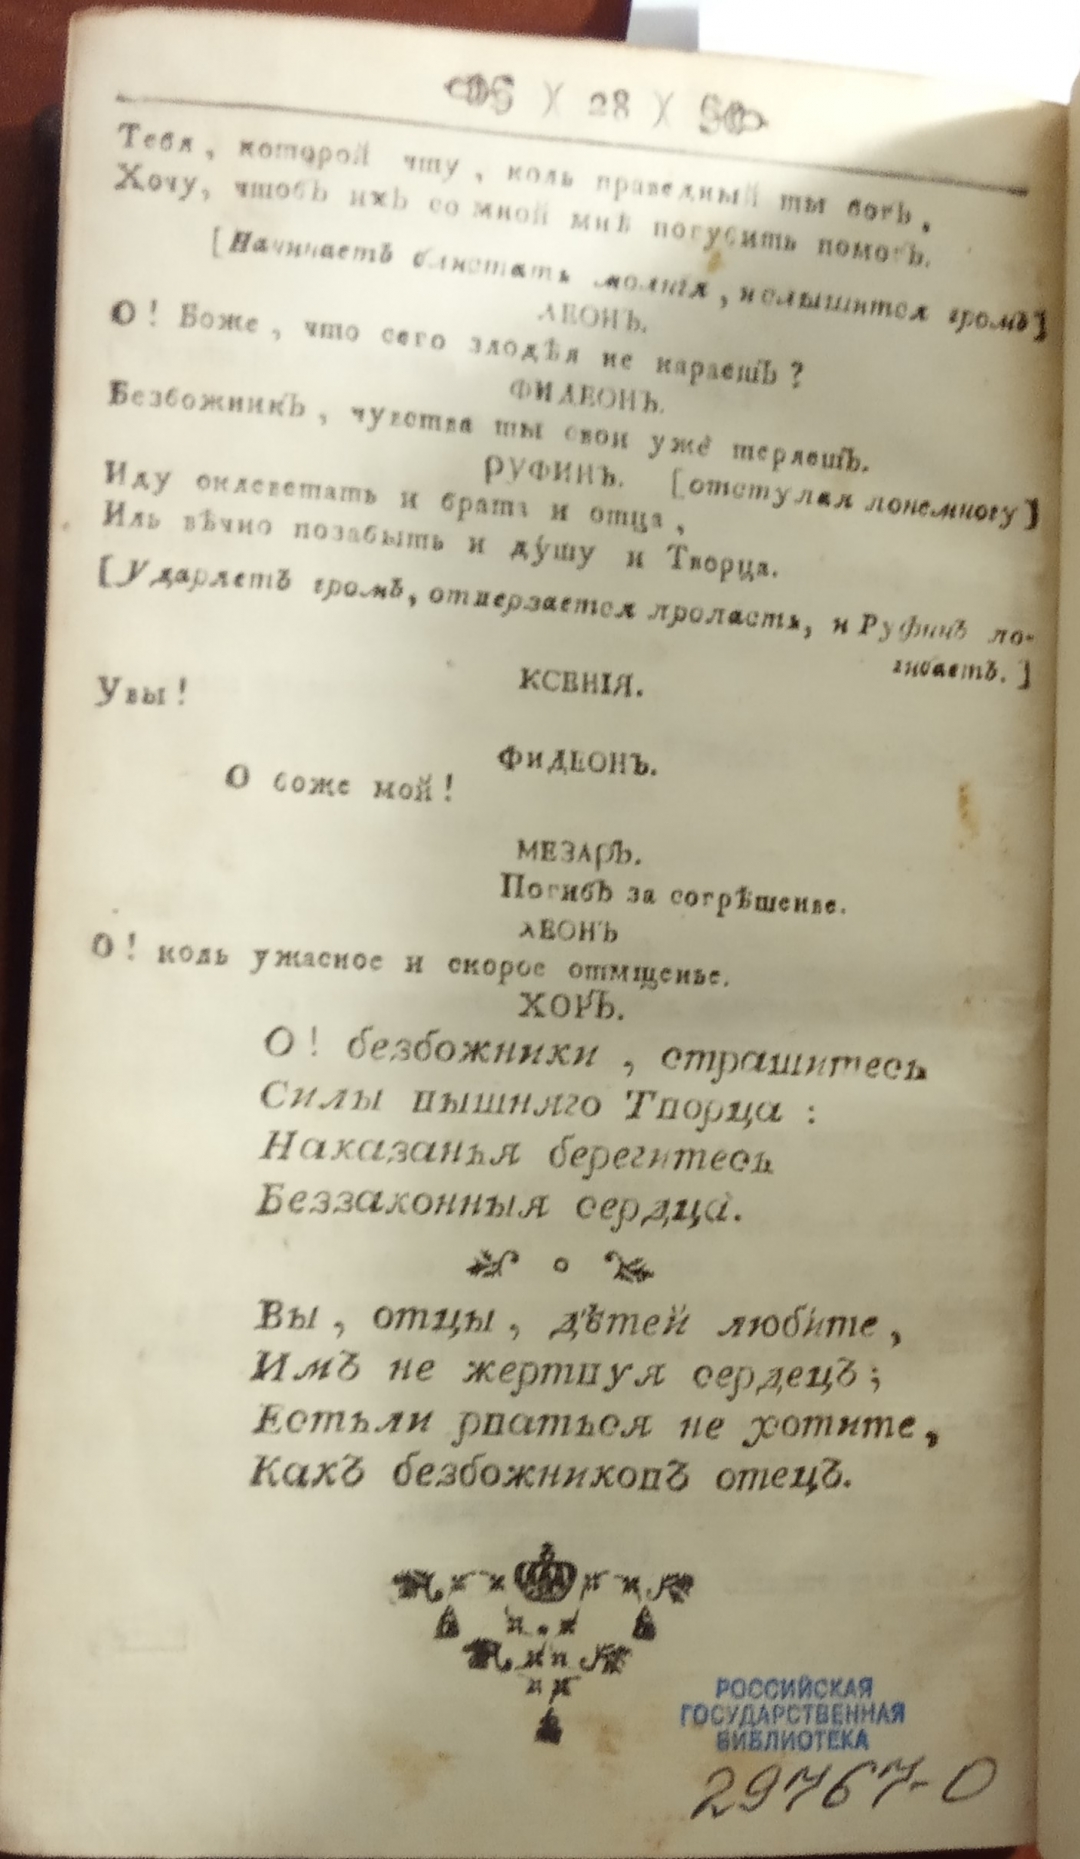 ) 28 (
Тебя, которой чту, коль праведный ты богъ,
Хочу, чтобъ ихъ со мной мнѣ погубить помогъ.
[Начинаетъ блистать молнія, и слышится громъ]
ЛЕОНЪ.
О! Боже, что сего злодѣя не караешь?
ФИЛЕОНЪ.
Безбожникъ, чувства ты свои уже теряешь.
РУФИНЪ. [отступая понемногу]
Иду оклеветать и брата и отца,
Иль вѣчно позабыть и душу и Творца.
[Ударяетъ громъ, отверзается пропасть, и Руфинъ по-
гибаетъ.]
КСЕНІЯ.
Увы!
ФИЛЕОНЪ.
О боже мой!
МЕЗАРЪ.
Погибъ за согрѣшенье.
ЛЕОНЪ
О! коль ужасное и скорое отмщенье.
ХОРЪ.
О! безбожники, страшитесь
Силы вышняго Творца:
Наказанья берегитесь
Беззаконныя сердца.
Вы, отцы, дѣтей любите,
Имъ не жертвуя сердецъ;
Естьли рваться не хотите,
Какъ безбожниковъ отецъ.
РОССИЙСКАЯ
ГОСУДАРСТВЕННАЯ
БИБЛИОТЕКА
29767-0